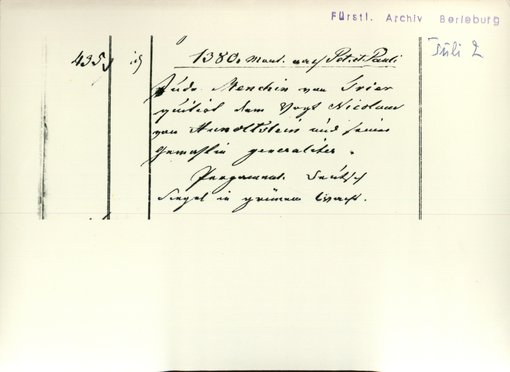 Fürstl. Archiv Berleburg
Juli 2
435
1380. Mont. nach Pet. et Pauli
Jude Menchin von Trier
quitirt dem Vogt Nicolaus
von Hunoltstein und seiner
Gemahlin generaliter.
Pergament. Deutsch
Siegel in grünem Wachs.